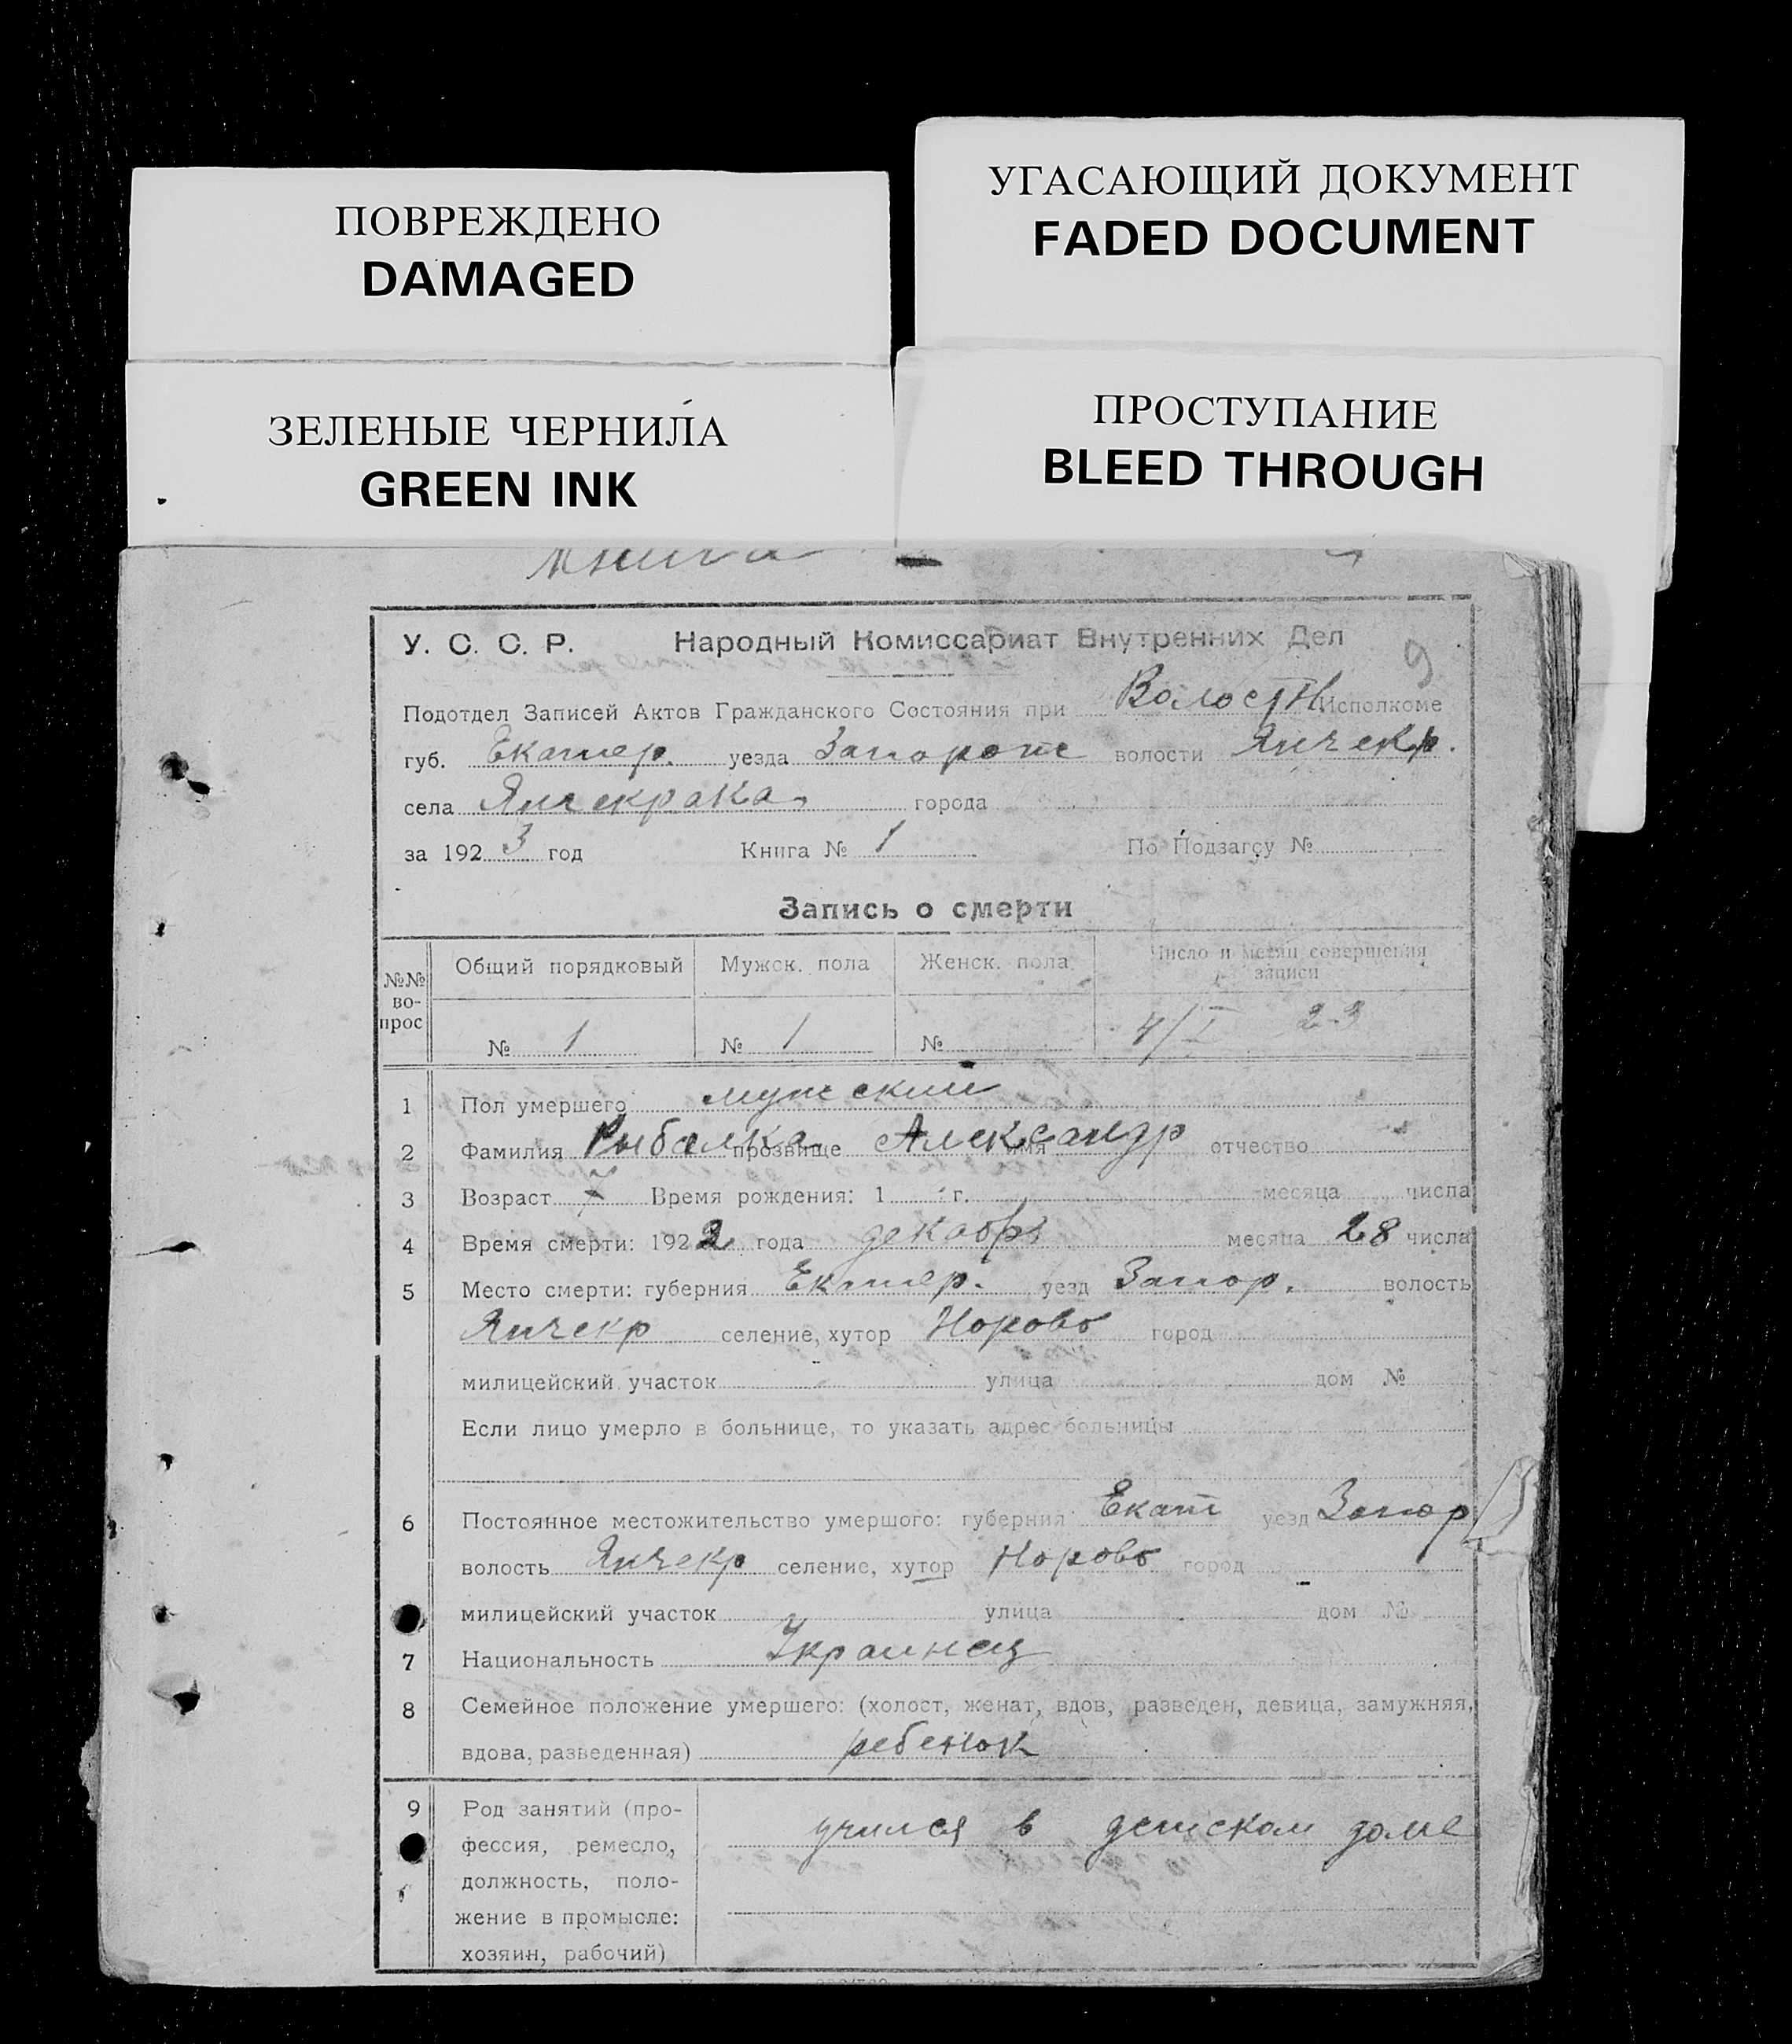 ПОВРЕЖДЕНО
DAMAGED
УГАСАЮЩИЙ ДОКУМЕНТ
FADED DOCUMENT
ЗЕЛЕНЫЕ ЧЕРНИЛА
GREEN INK
ПРОСТУПАНИЕ
BLEED THROUGH
книга
У. С. С. Р. Народный Комиссариат Внутренних Дел 9
Подотдел Записей Актов Гражданского Состояния при Волостн Исполкоме
губ. Екатер. уезда Запорож волости Янчекр.
села Янчекрака города
за 1923 год Книга № 1 По Подзагсу №
Запись о смерти
№№ вопрос Общий порядковый Мужск. пола Женск. пола Число и месяц совершения записи
№ 1 № 1 № 4/I 23
1 Пол умершего мужский
2 Фамилия Рыбалка прозвище Александр имя отчество
3 Возраст 7 Время рождения: 1 г. месяца числа
4 Время смерти: 1922 года декабря месяца 28 числа
5 Место смерти: губерния Екатер. уезд Запор. волость
Янчекр селение, хутор город
милицейский участок улица дом №
Если лицо умерло в больнице, то указать адрес больницы
6 Постоянное местожительство умершого: губерния Екат уезд Запор
волость Янчекр селение, хутор город
милицейский участок улица дом №
7 Национальность Украинец
8 Семейное положение умершего: (холост, женат, вдов, разведен, девица, замужняя,
вдова, разведенная) ребенок
9 Род занятий (про- учился в детском доме
фессия, ремесло,
должность, поло-
жение в промысле:
хозяин, рабочий)